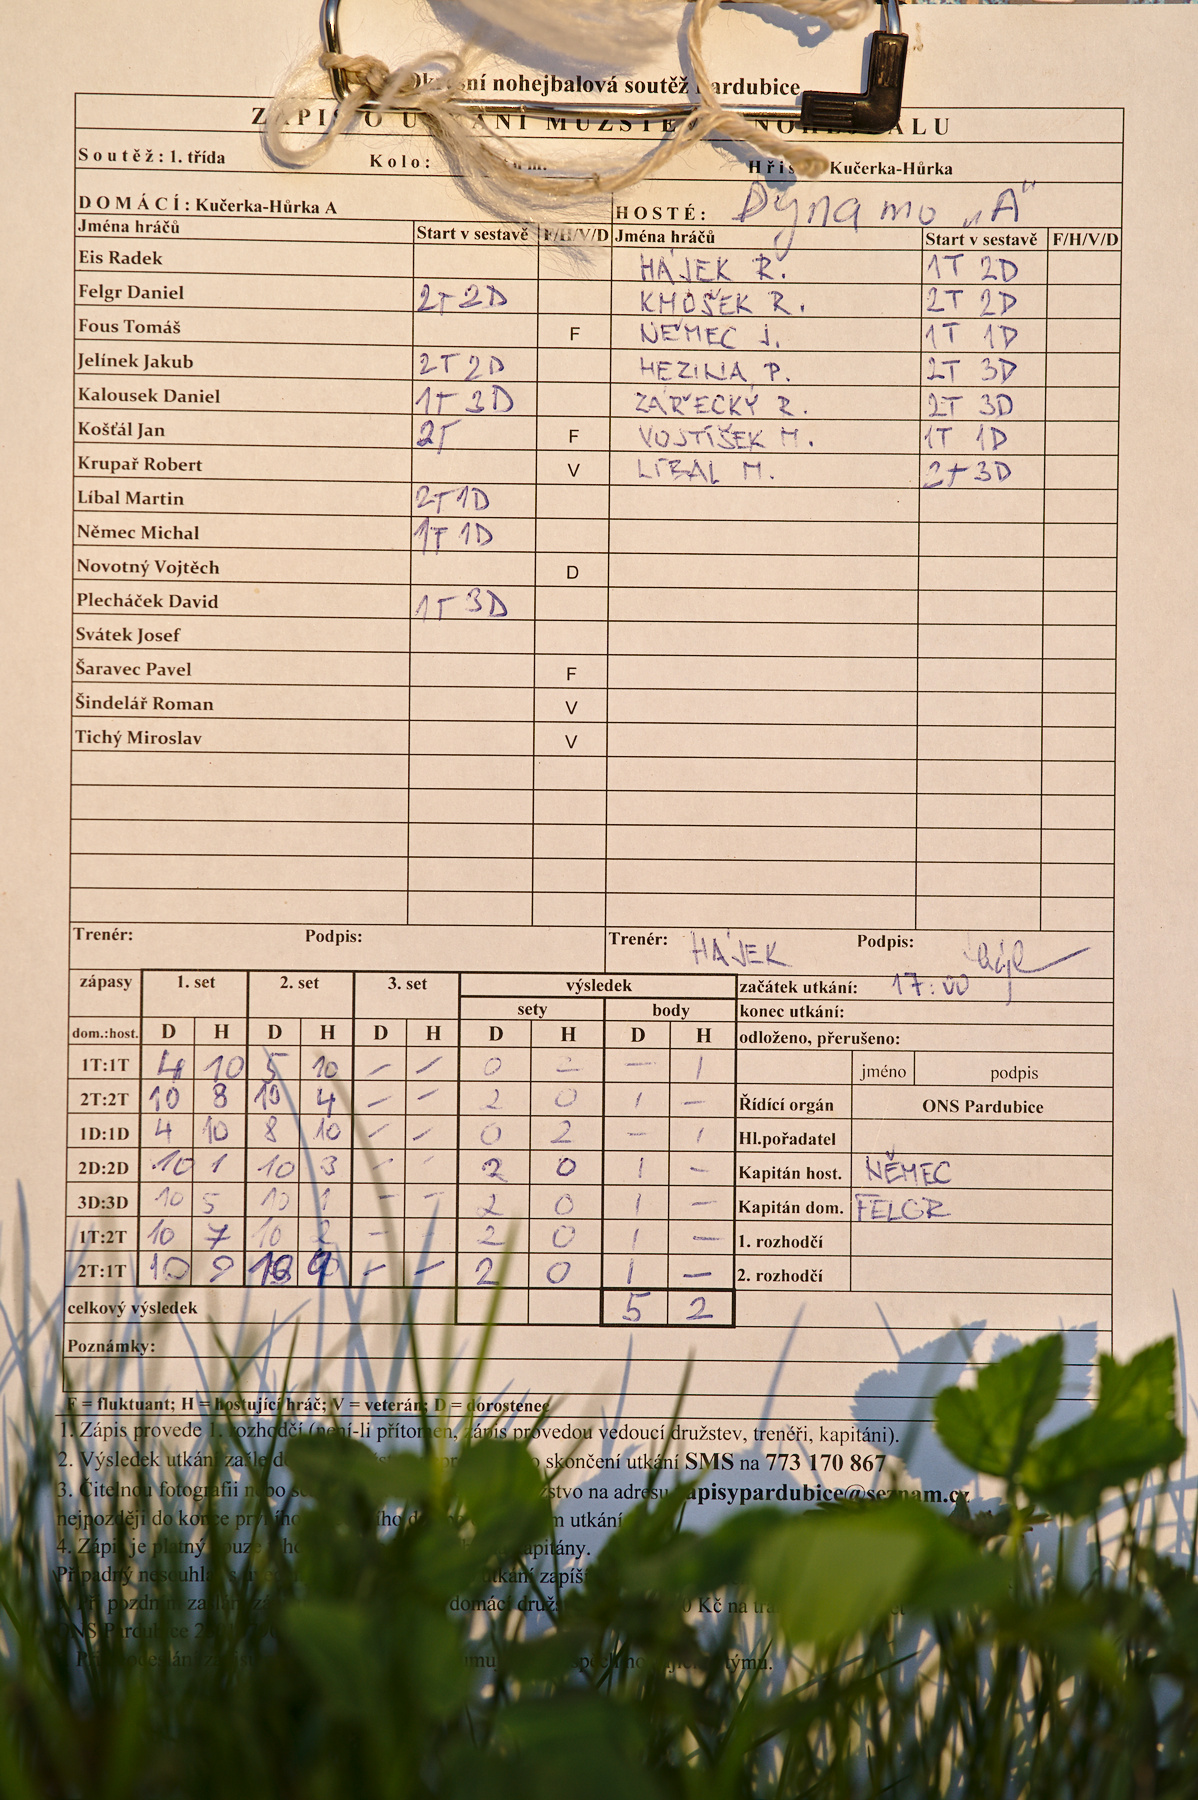 nohejbalová soutěž Pardubice
Soutěž: 1. třída Kolo: Kučerka-Hůrka
DOMÁCÍ: Kučerka-Hůrka A HOSTÉ: Dynamo „A"
Jména hráčů Start v sestavě F/H/V/D Jména hráčů Start v sestavě F/H/V/D
Eis Radek HÁJEK R. 1T 2D
Felgr Daniel 2T 2D KMOŠEK R. 2T 2D
Fous Tomáš F NĚMEC J. 1T 1D
Jelínek Jakub 2T 2D HEZINA P. 2T 3D
Kalousek Daniel 1T 3D ZÁŘECKÝ R. 2T 3D
Košťál Jan 2T F VOJTÍŠEK M. 1T 1D
Krupař Robert V LÍBAL M. 2T 3D
Líbal Martin 2T 1D
Němec Michal 1T 1D
Novotný Vojtěch D
Plecháček David 1T 3D
Svátek Josef
Šaravec Pavel F
Šindelář Roman V
Tichý Miroslav V
Trenér: Podpis: Trenér: HÁJEK Podpis:
zápasy 1. set 2. set 3. set výsledek začátek utkání: 17:00
sety body konec utkání:
dom.:host. D H D H D H D H D H odloženo, přerušeno:
1T:1T 4 10 5 10 – – 0 2 – 1 jméno podpis
2T:2T 10 8 10 4 – – 2 0 1 – Řídící orgán ONS Pardubice
1D:1D 4 10 8 10 – – 0 2 – 1 Hl.pořadatel
2D:2D 10 1 10 3 – – 2 0 1 – Kapitán host. NĚMEC
3D:3D 10 5 10 1 – – 2 0 1 – Kapitán dom. FELGR
1T:2T 10 7 10 – – 2 0 1 – 1. rozhodčí
2T:1T 10 9 10 – – 2 0 1 – 2. rozhodčí
celkový výsledek 5 2
Poznámky:
F = fluktuant; H = hostující hráč; V = veterán; D = dorostenec
1. Zápis provede 1. rozhodčí (není-li přítomen, zápis provedou vedoucí družstev, trenéři, kapitáni).
2. Výsledek utkání zašle skončení utkání SMS na 773 170 867
3. Čitelnou fotografii nebo na adresu zapisypardubice@seznam.cz
nejpozději do konce utkání
4. Zápis je platný pouze kapitány.
Případný nesouhlas utkání zapíší
5. Při pozdním zaslání domácí Kč na
ONS Pardubice
týmu.